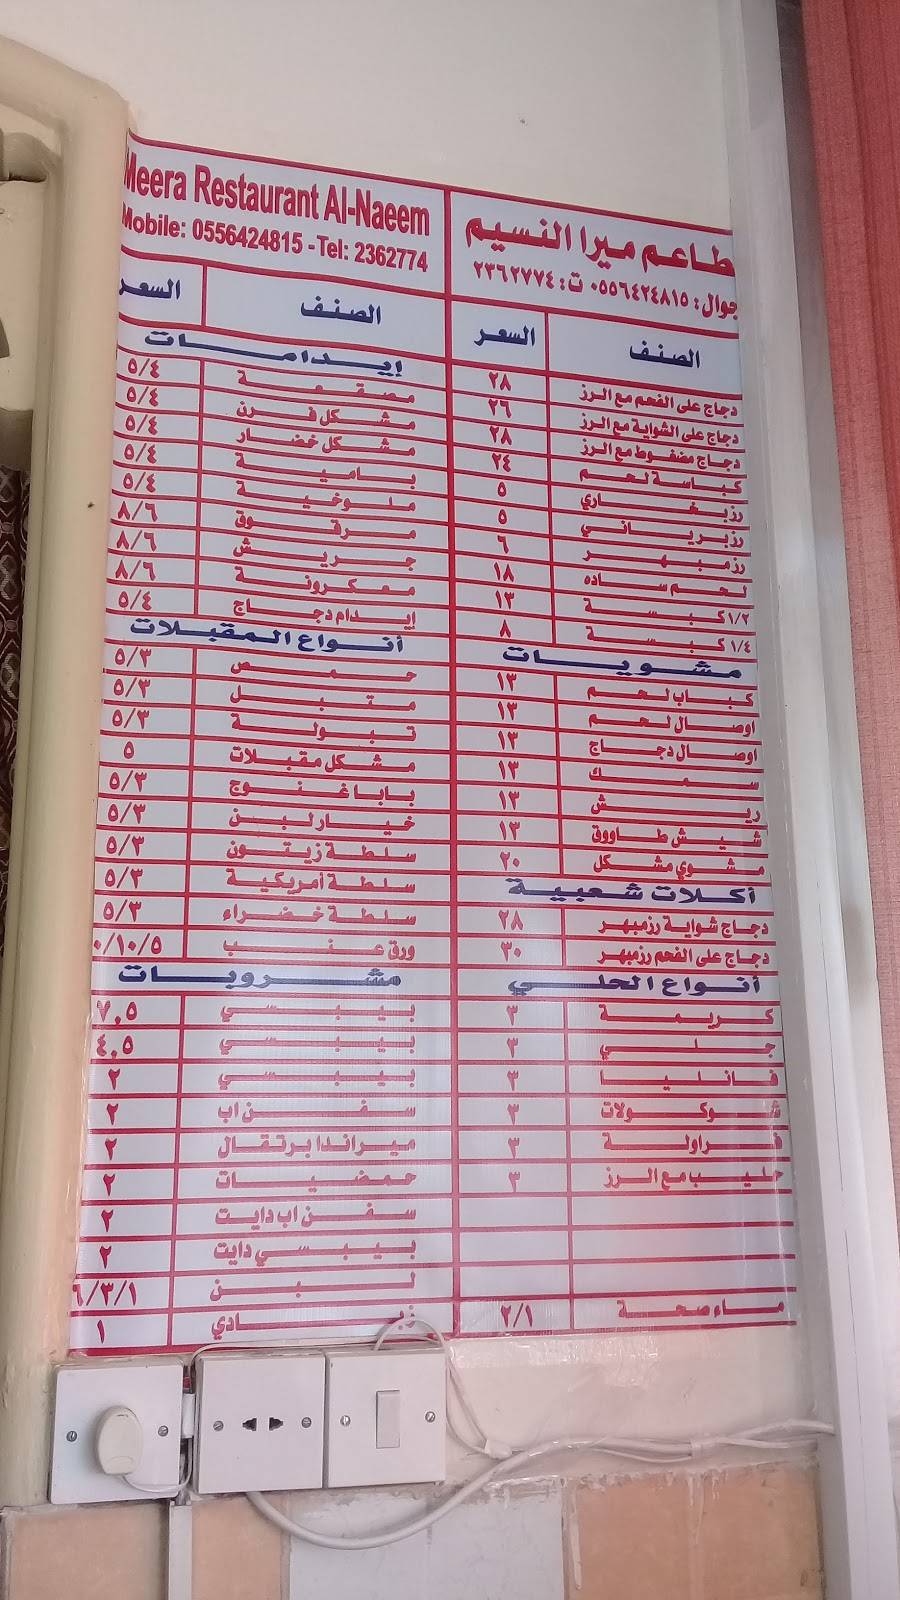 Meera Restaurant Al-Naeem
Mobile: 0556424815 -Tel: 2362774
طاعم ميرا النسيم
جوال: ٠٥٥٦٤٢٤٨١٥ ت: ٢٣٦٢٧٧٤
الصنف السعر
دجاج على الفحم مع الرز ٢٨
دجاج على الشواية مع الرز ٢٦
دجاج مضغوط مع الرز ٢٨
كباسة لحم ٢٤
رز بخاري ٥
رز برياني ٥
رز مبهر ٦
لحم ساده ١٨
١/٢ كبسة ١٣
١/٤ كبسة ٨
مشويات
كباب لحم ١٣
اوصال لحم ١٣
اوصال دجاج ١٣
سمك ١٣
ريش ١٣
شيش طاووق ١٣
مشوي مشكل ٢٠
أكلات شعبية
دجاج شواية رز مبهر ٢٨
دجاج على الفحم رز مبهر ٣٠
أنواع الحلي
كريمة ٣
جلي ٣
فانليا ٣
شوكولات ٣
فراولة ٣
حليب مع الرز ٣
ماء صحة ٢/١
الصنف السعر
إيدامات
مصقعة ٥/٤
مشكل فرن ٥/٤
مشكل خضار ٥/٤
بامية ٥/٤
ملوخية ٥/٤
مرقوق ٨/٦
جريش ٨/٦
معكرونة ٨/٦
إيدام دجاج ٥/٤
أنواع المقبلات
حمص ٥/٣
متبل ٥/٣
تبولة ٥/٣
مشكل مقبلات ٥
بابا غنوج ٥/٣
خيار لبن ٥/٣
سلطة زيتون ٥/٣
سلطة أمريكية ٥/٣
سلطة خضراء ٥/٣
ورق عنب ٠/١٠/٥
مشروبات
بيبسي ٧,٥
بيبسي ٤,٥
بيبسي ٢
سفن اب ٢
ميراندا برتقال ٢
حمضيات ٢
سفن اب دايت ٢
بيبسي دايت ٢
لبن ٦/٣/١
زبادي ١